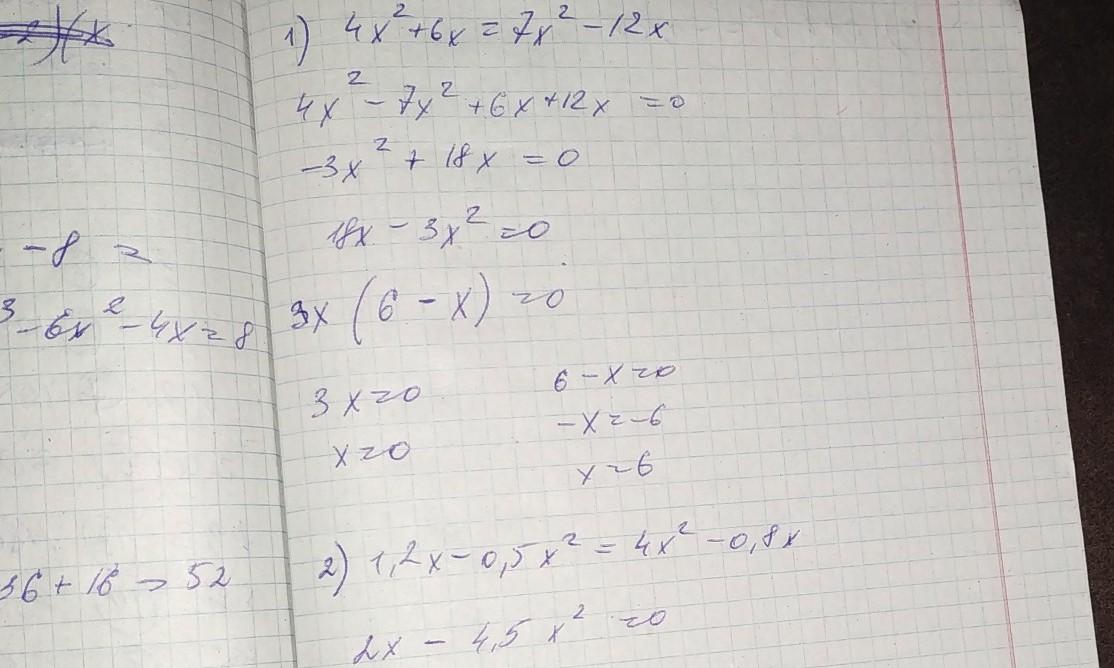 - 8 =
³ - 6x² - 4x = 8
36 + 16 → 52
1) 4x² + 6x = 7x² - 12x
4x² - 7x² + 6x + 12x = 0
-3x² + 18x = 0
18x - 3x² = 0
3x (6 - x) = 0
3x = 0    6 - x = 0
x = 0    -x = -6
x = 6
2) 1,2x - 0,5x² = 4x² - 0,8x
2x - 4,5x² = 0